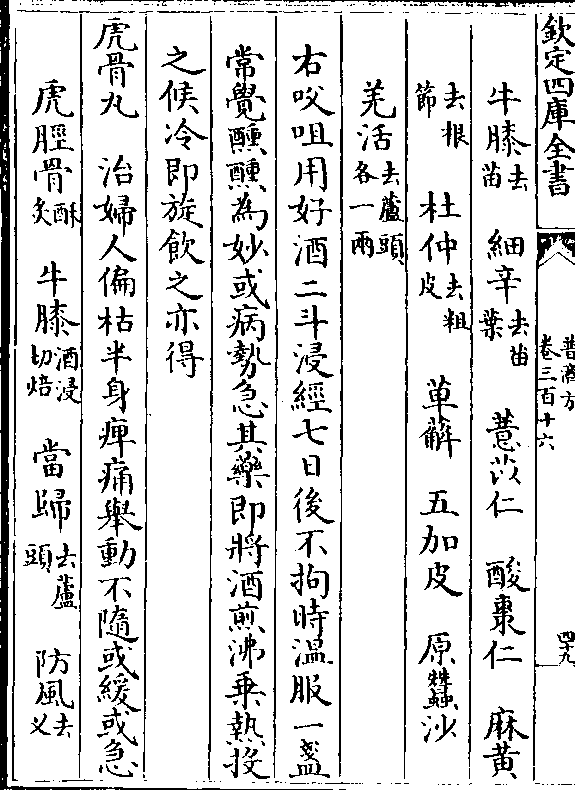 欽定四庫全書
普濟方
卷三百十六
四十九
牛膝去苗 細辛去苗葉 薏苡仁 酸棗仁 麻黄
去根節 杜仲去粗皮 萆薢 五加皮 原蠶沙
羌活去蘆頭各一兩
右㕮咀用好酒二斗浸經七日後不拘時温服一盞
常覺醺醺為妙或病勢急其藥即將酒煎沸乗熱投
之候冷即旋飲之亦得
虎骨丸 治婦人偏枯半身痺痛舉動不隨或緩或急
虎脛骨酥炙 牛膝酒浸切焙 當歸去蘆頭 防風去乂